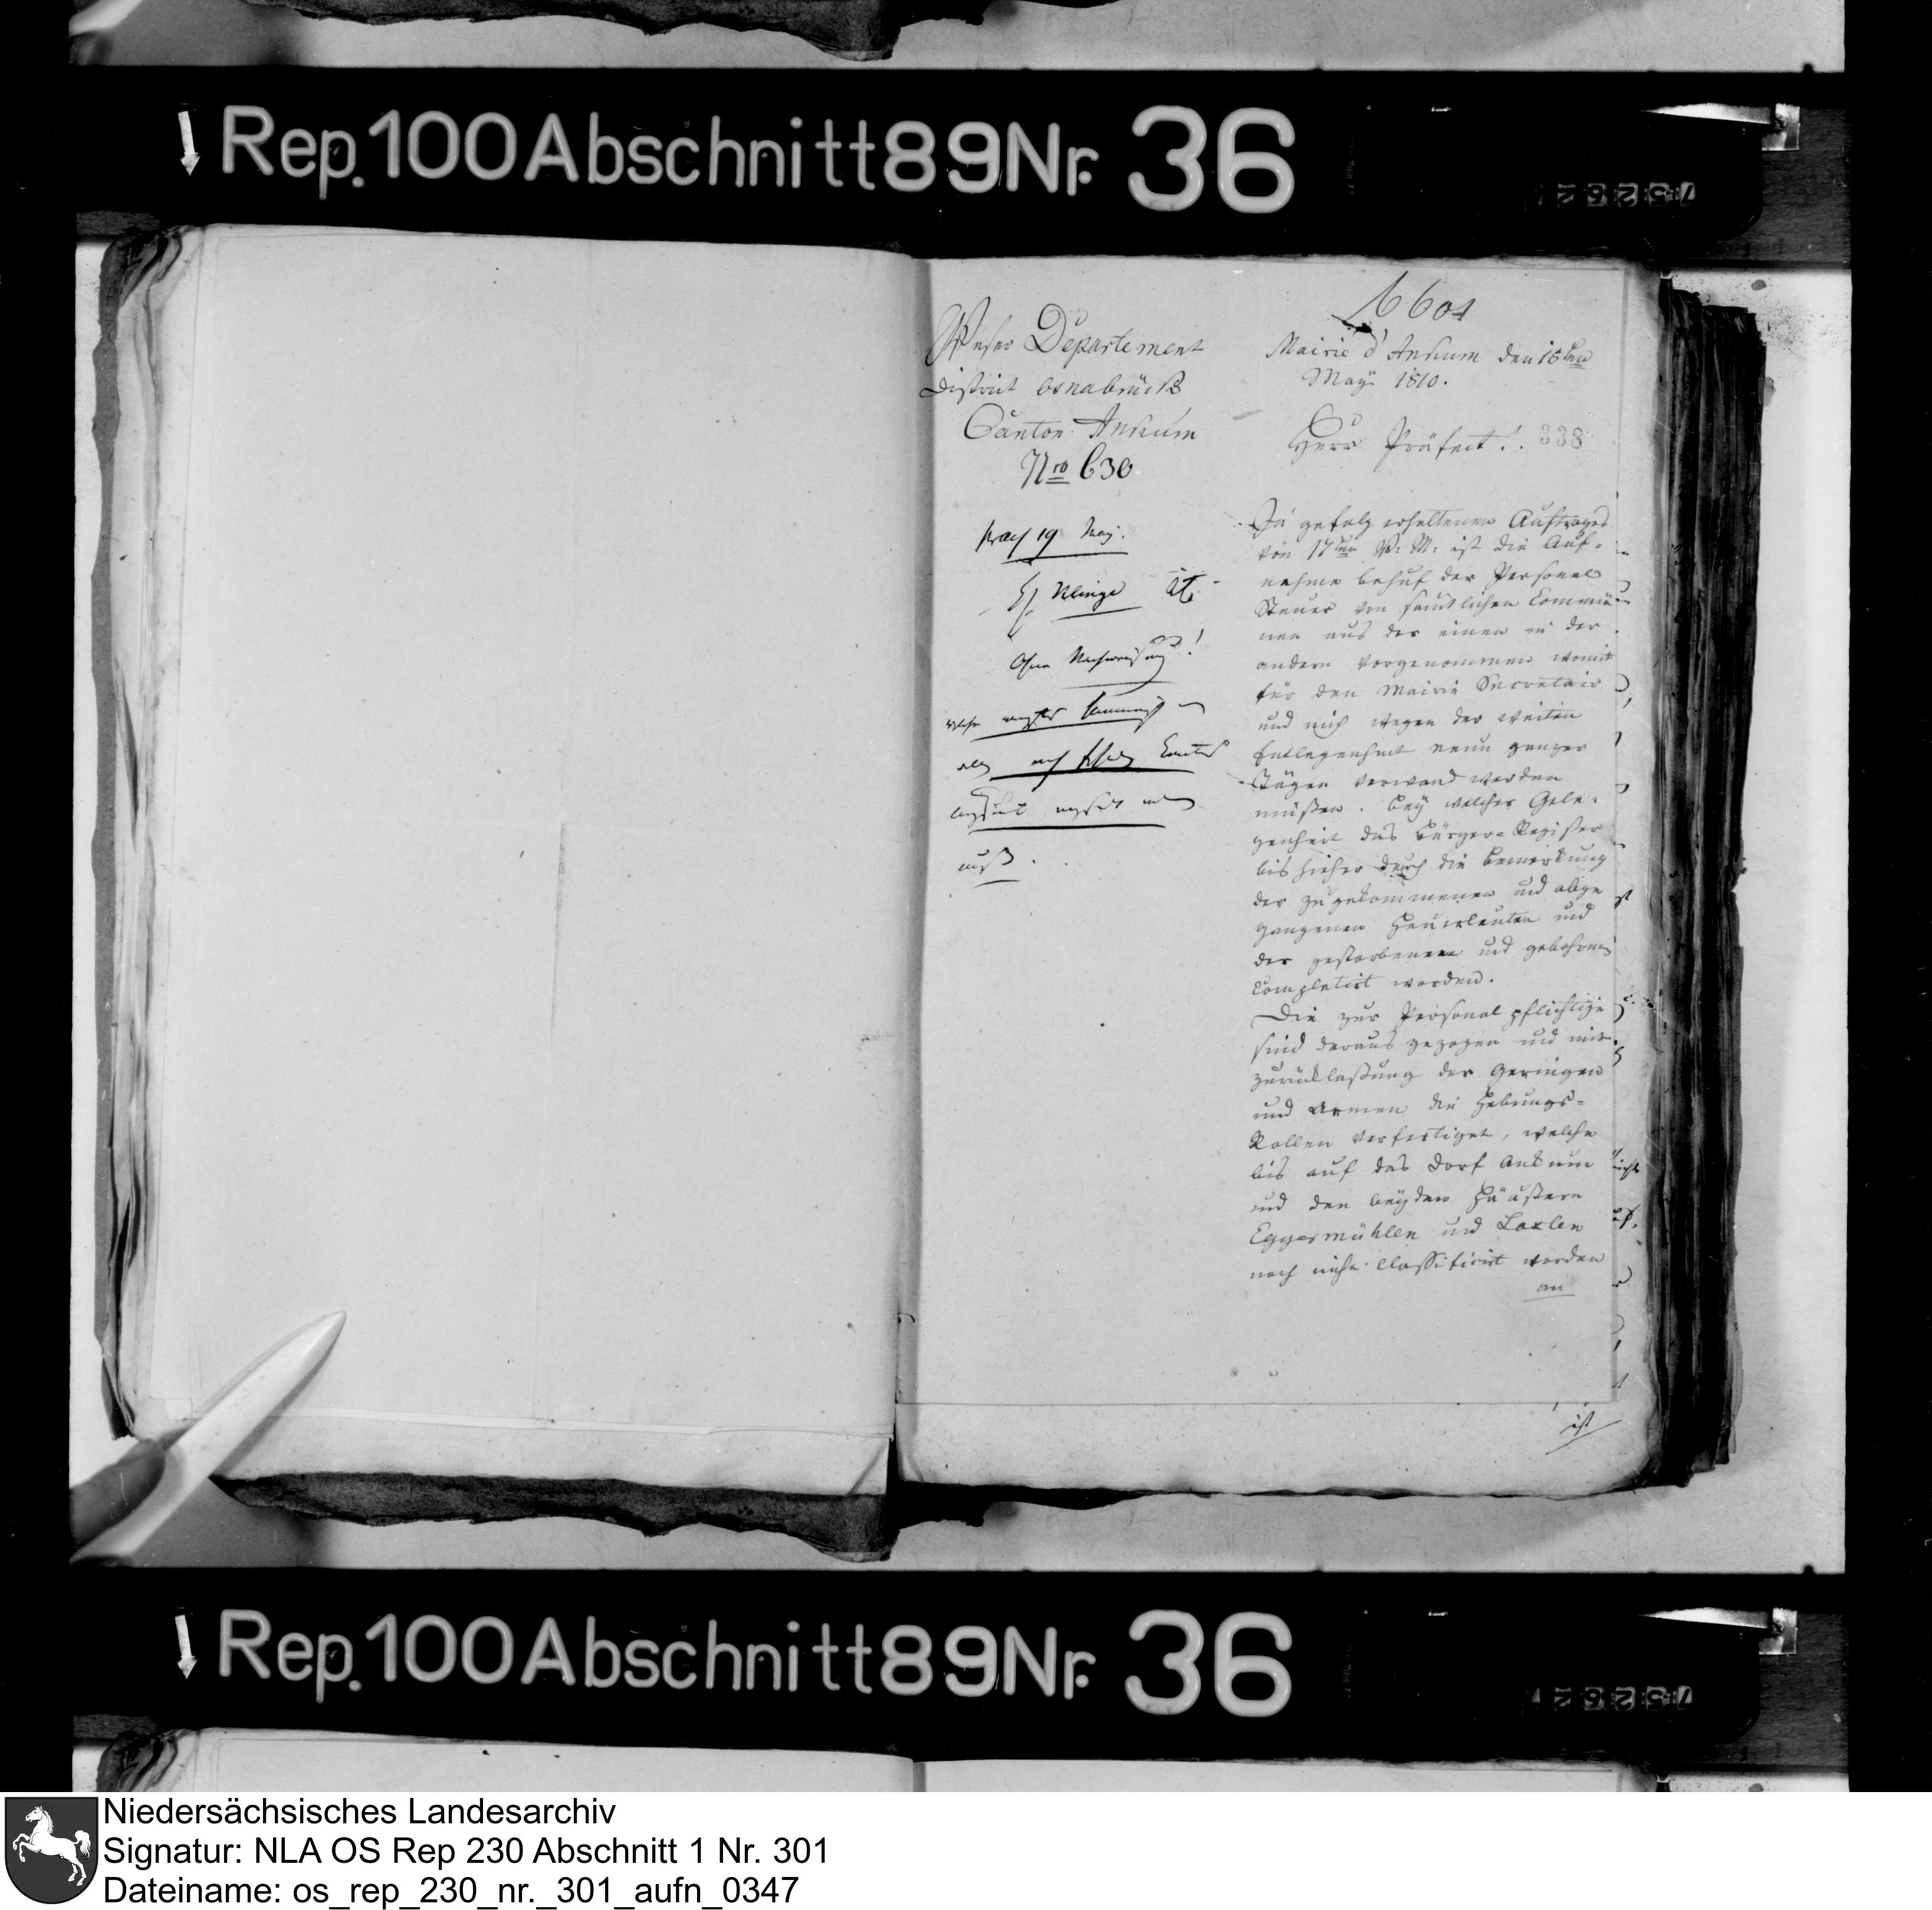 Rep. 100 Abschnitt 89 Nr. 36
6604
Weser Departement
District Osnabrück
Canton Ankum
Nro 630
Mairie d'Ankum den 18ten
May 1810.
Herr Präfect!
338
praes 19 May.
Zu gefolg erhaltenen Auftrages
von 17ten V: M: ist die Auf-
nahme behuf der Personal
Steuer von sämtlichen Commü-
nen aus der einen in der
andern vorgenommen womit
für den Mairie Secretair
und mich wegen der weiten
Entlegenheit neun ganzer
Tägen verwand werden
müßen. bey welcher Gele-
genheit das Bürger-Register
bis hieher durch die Bemerkung
der zugekommenen und abge
gangenen Heuerleuten und
der gestorbenen und gebohrnen
Completirt worden.
Die zur Personal pflichtige
sind daraus gezogen und mit
zurücklaßung der Geringen
und Armen die Hebungs-
Rollen verfertiget, welche
bis auf das Dorf Ankum
und den beyden Häußern
Eggermühlen und Loxten
noch nicht Classificirt worden
an
ist
Rep. 100 Abschnitt 89 Nr. 36
Niedersächsisches Landesarchiv
Signatur: NLA OS Rep 230 Abschnitt 1 Nr. 301
Dateiname: os_rep_230_nr._301_aufn_0347